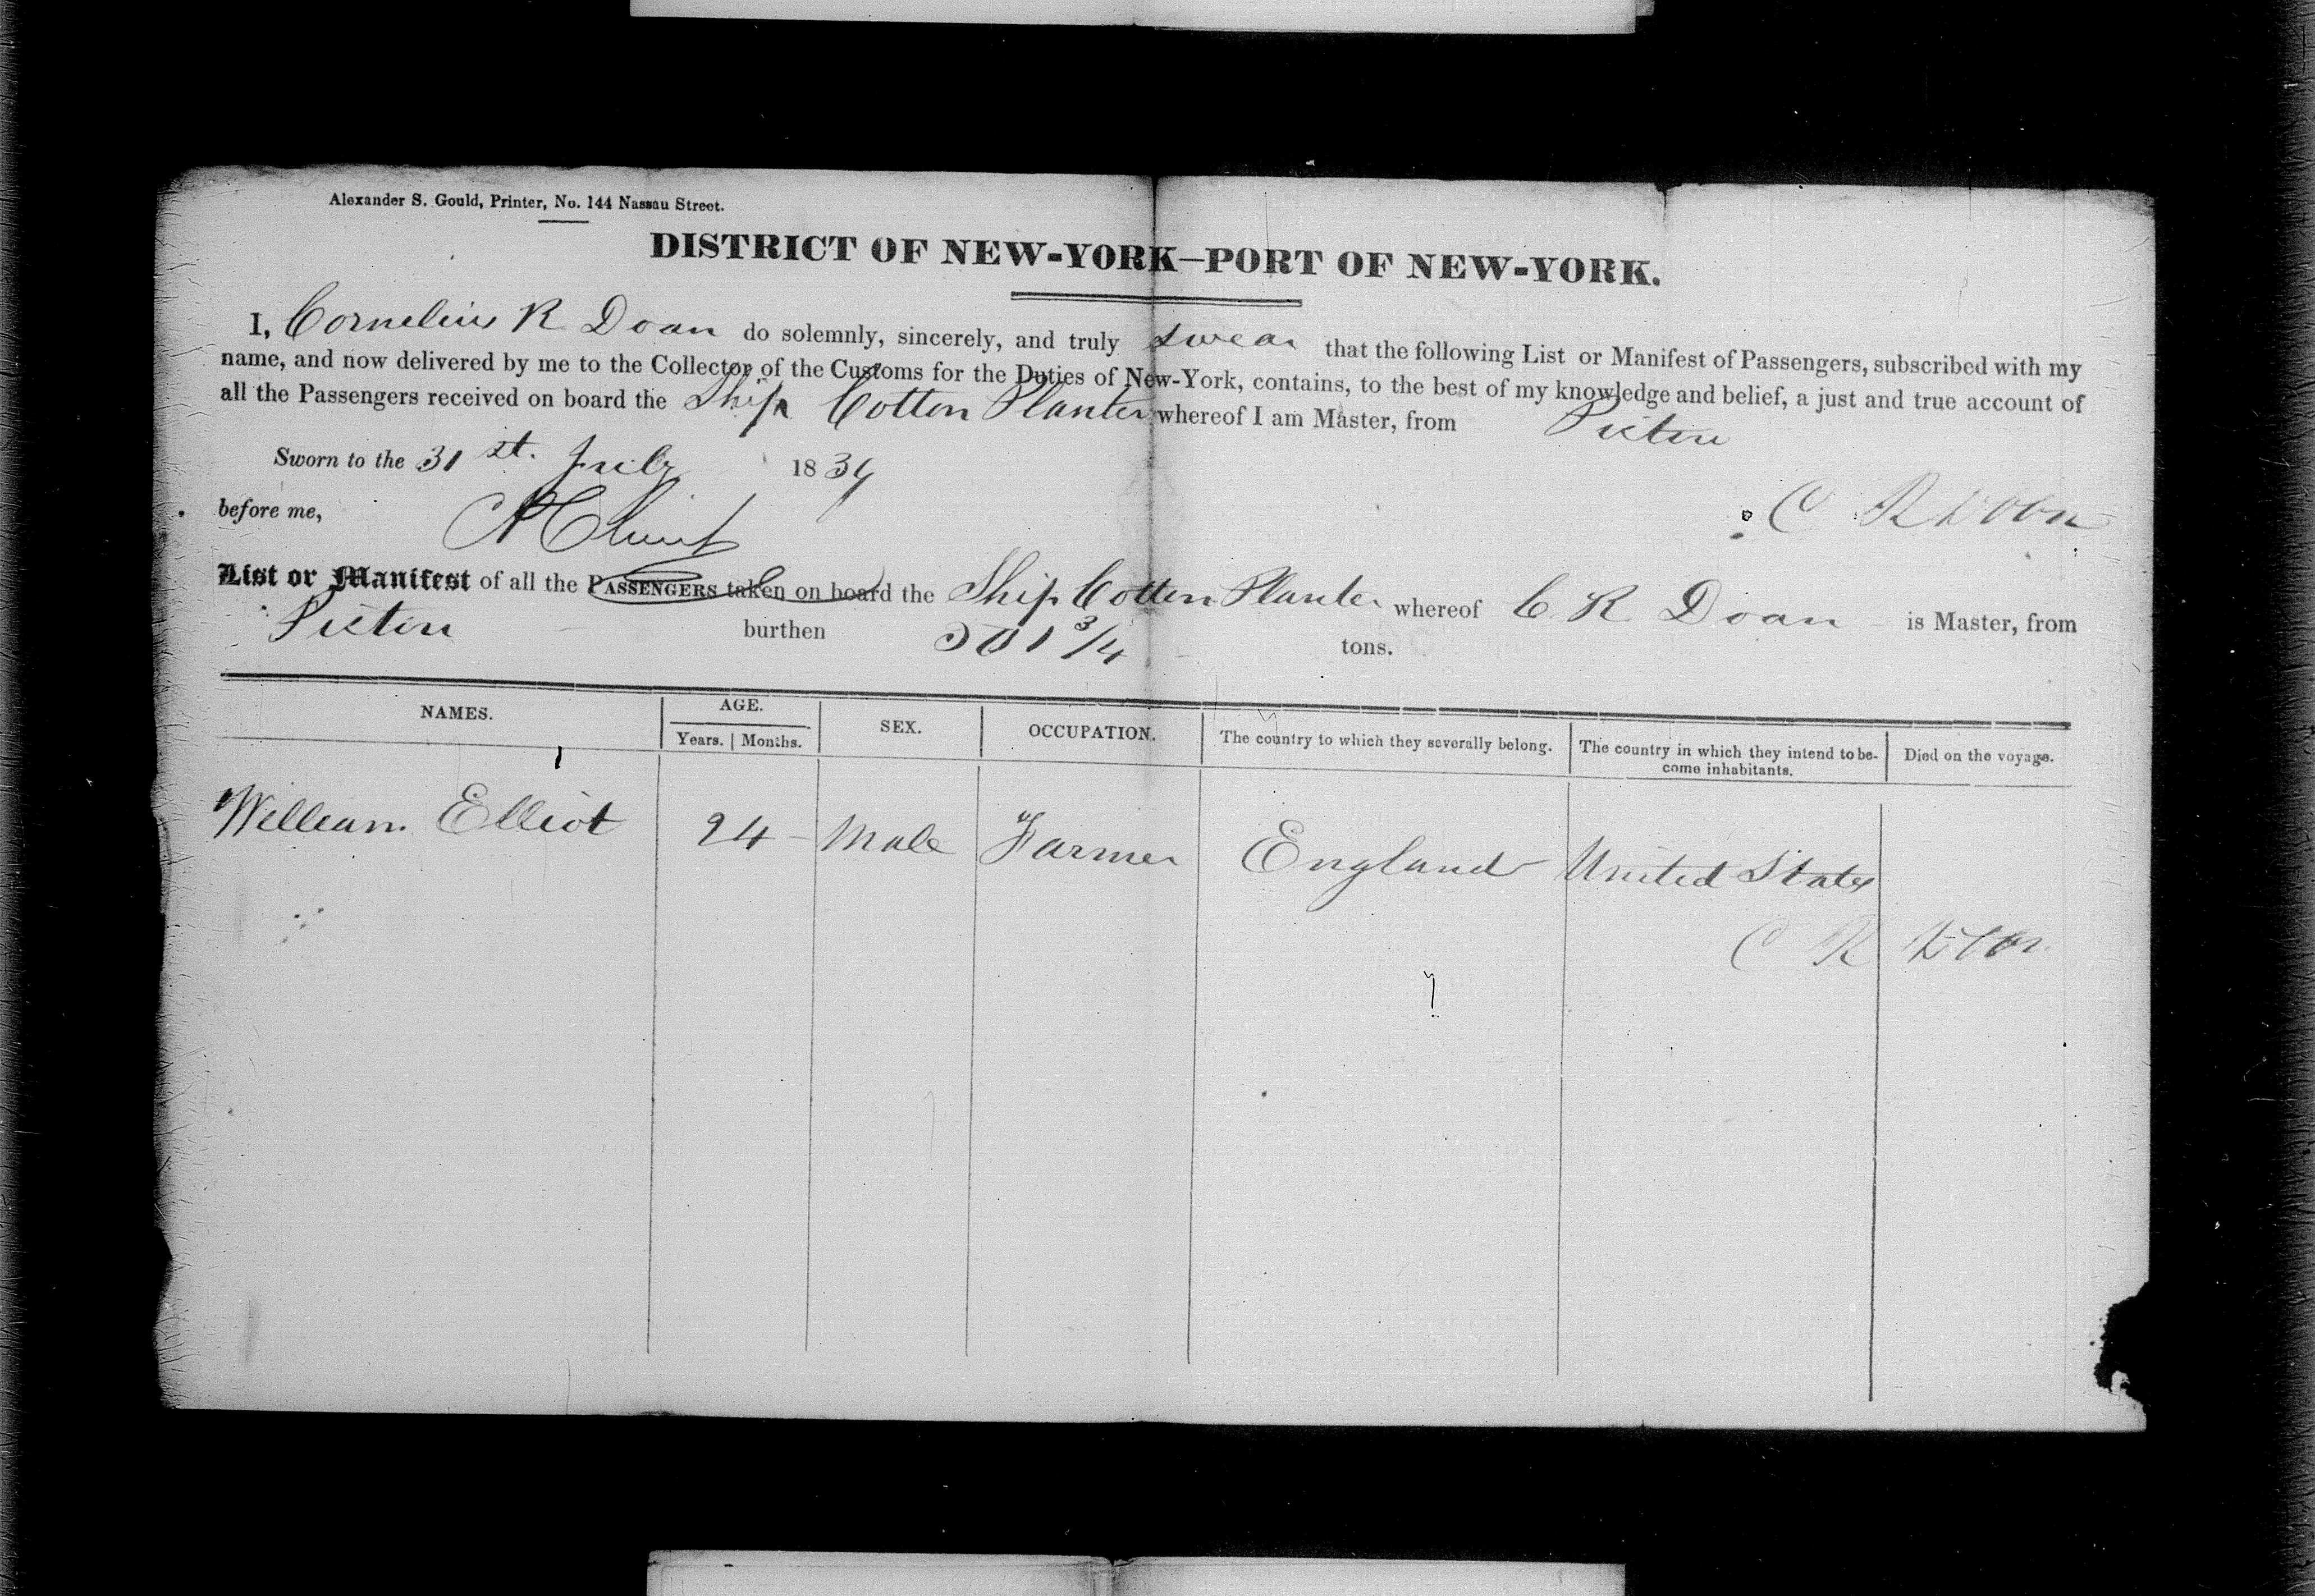 Alexander S. Gould, Printer, No. 144 Nassau Street.
DISTRICT OF NEW-YORK—PORT OF NEW-YORK.
I, Cornelius R Doan do solemnly, sincerely, and truly swear that the following List or Manifest of Passengers, subscribed with my
name, and now delivered by me to the Collector of the Customs for the Duties of New-York, contains, to the best of my knowledge and belief, a just and true account of
all the Passengers received on board the Ship Cotton Planter whereof I am Master, from Pictou
Sworn to the 31st. July 1834
C R Doan
before me,
List or Manifest of all the PASSENGERS taken on board the Ship Cotton Planter whereof C. R Doan is Master, from
Pictou burthen 501 3/4 tons.
NAMES. AGE. SEX. OCCUPATION. The country to which they severally belong. The country in which they intend to be- Died on the voyage.
Years. Months. come inhabitants.
William Elliot 24 Male Farmer England United States
C R Doan